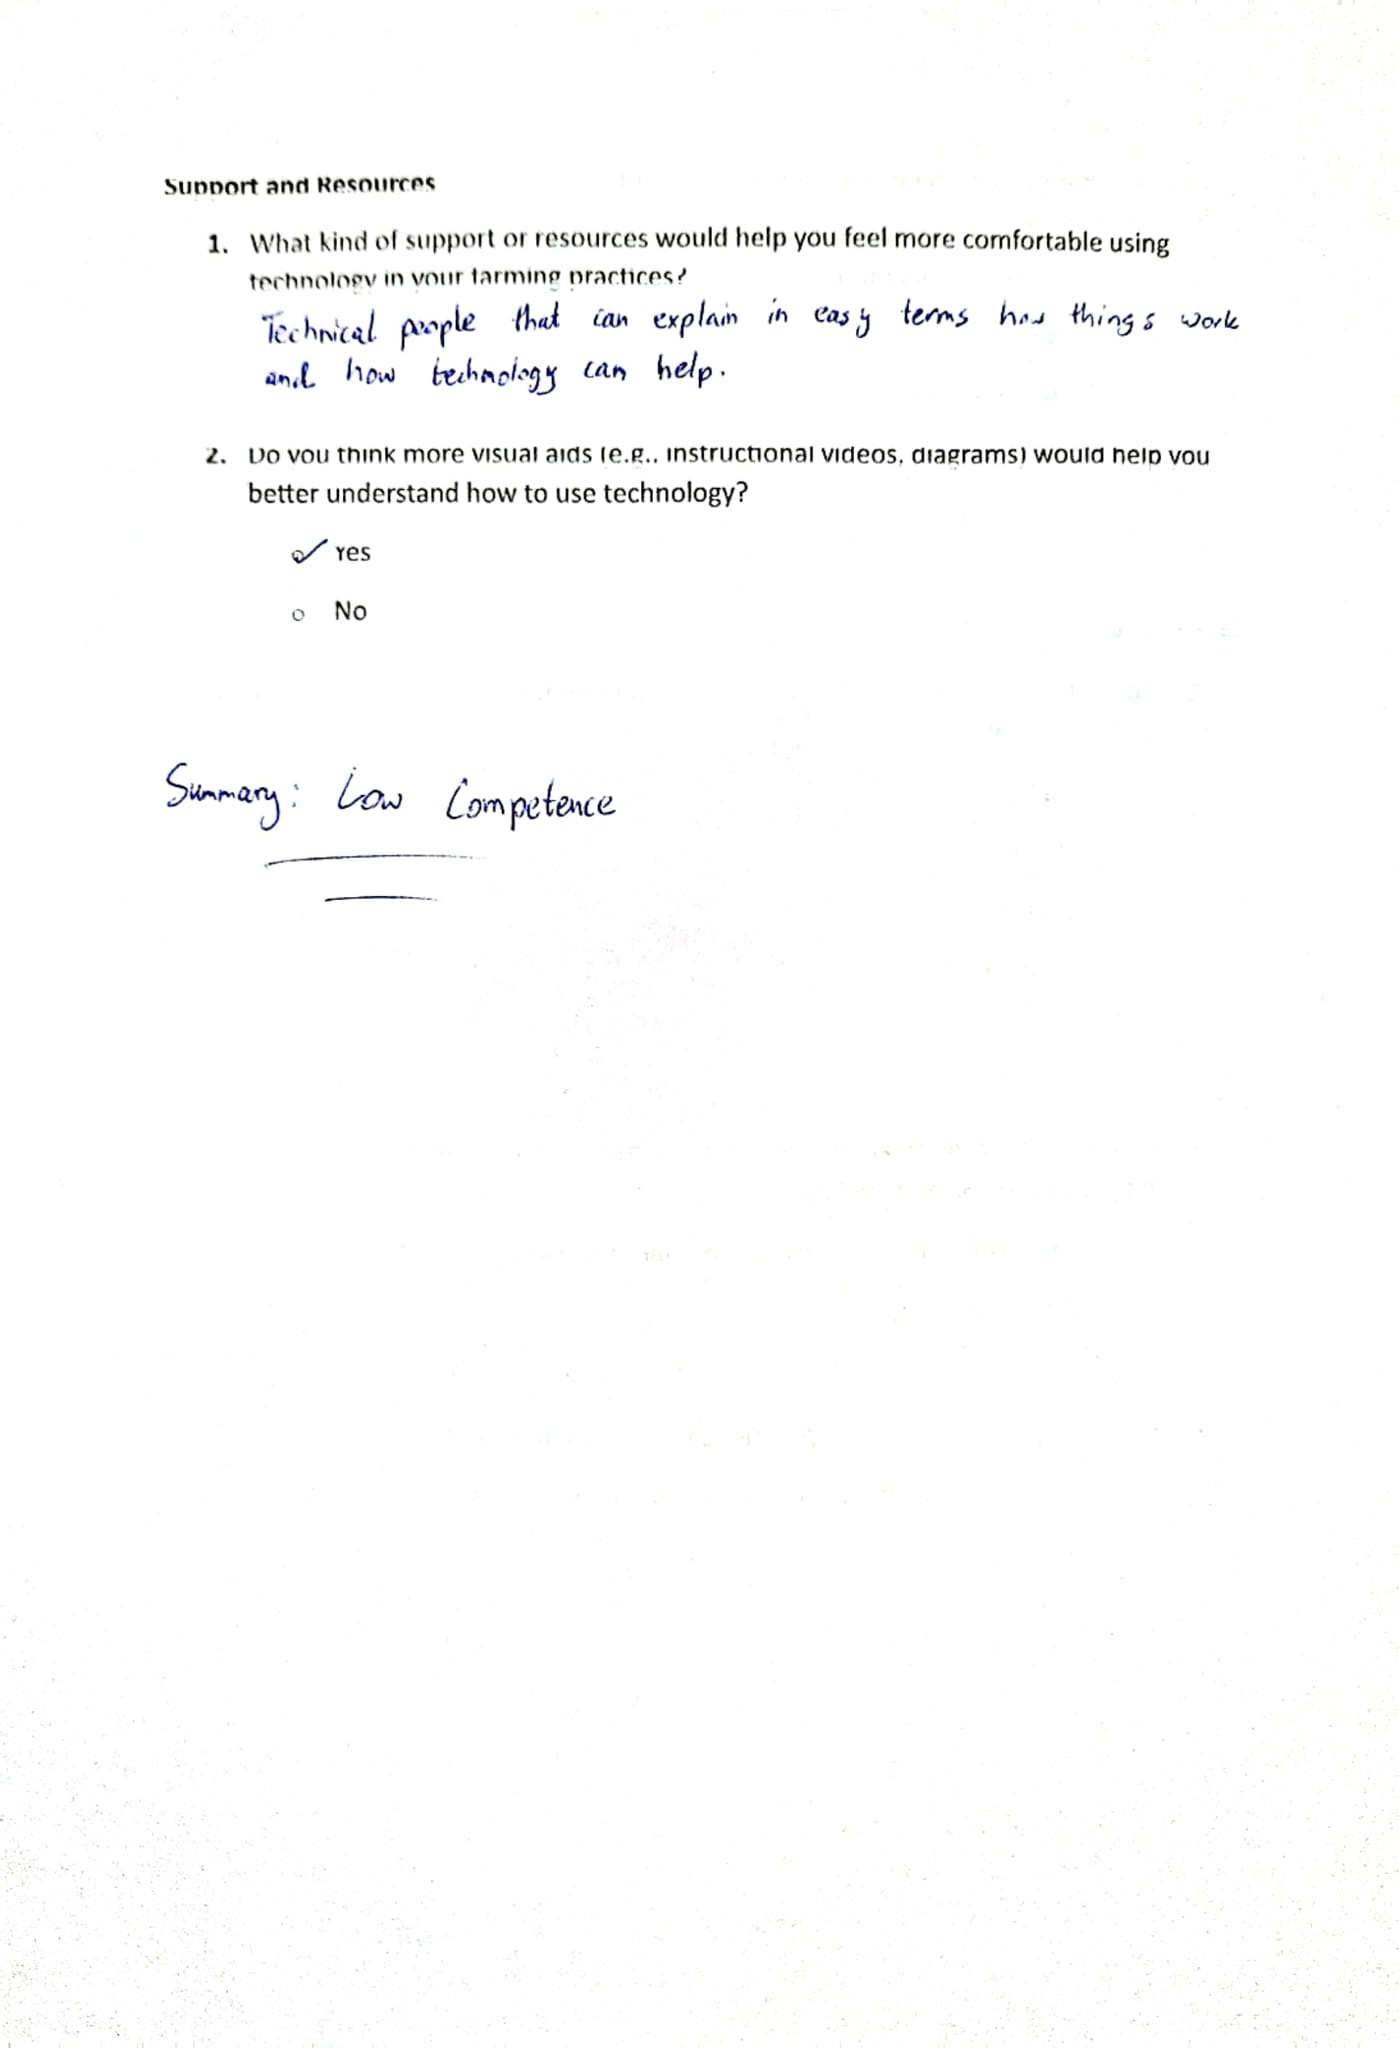 Support and Resources
1. What kind of support or resources would help you feel more comfortable using
technology in your farming practices?
Technical people that can explain in easy terms how things work
and how technology can help.
2. Do you think more visual aids (e.g., instructional videos, diagrams) would help you
better understand how to use technology?
✓ Yes
o No
Summary: Low Competence